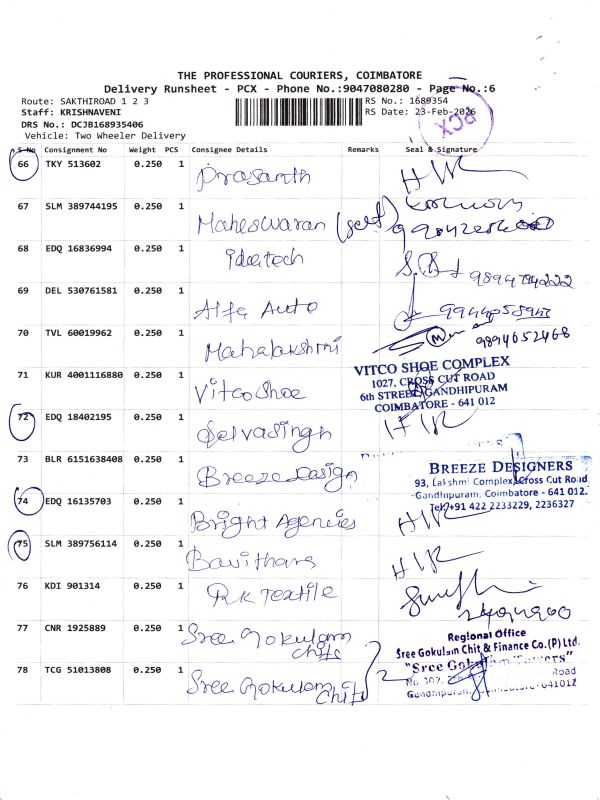 THE PROFESSIONAL COURIERS, COIMBATORE
Delivery Runsheet - PCX - Phone No.:9047080280 - Page No.:6
Route: SAKTHIROAD 1 2 3 RS No.: 1689354
Staff: KRISHNAVENI RS Date: 23-Feb-2026
DRS No.: DCJB168935406 PCX
Vehicle: Two Wheeler Delivery
S No Consignment No Weight PCS Consignee Details Remarks Seal & Signature
66 TKY 513602 0.250 1 Prasanth
67 SLM 389744195 0.250 1 Maheswaran (self)
68 EDQ 16836994 0.250 1 Ideetech
69 DEL 530761581 0.250 1 Alfa Auto
70 TVL 60019962 0.250 1 Mahalakshmi 9894652468
71 KUR 4001116880 0.250 1 Vitco Shoe
VITCO SHOE COMPLEX
1027, CROSS CUT ROAD
6th STREET, GANDHIPURAM
COIMBATORE - 641 012
72 EDQ 18402195 0.250 1 Selvasingh
73 BLR 6151638408 0.250 1 Breeze Design
BREEZE DESIGNERS
93, Lakshmi Complex, Cross Cut Road
Gandhipuram, Coimbatore - 641 012.
Tel:+91 422 2233229, 2236327
74 EDQ 16135703 0.250 1 Bright Agencies
75 SLM 389756114 0.250 1 Bavithara
76 KDI 901314 0.250 1 RK Textile
77 CNR 1925889 0.250 1 Sree Gokulam Chits
Regional Office
Sree Gokulam Chit & Finance Co.(P) Ltd.
"Sree Gokulam Towers"
78 TCG 51013808 0.250 1 Sree Gokulam Chits
No. 307, Road
Gandhipuram, Coimbatore - 641012